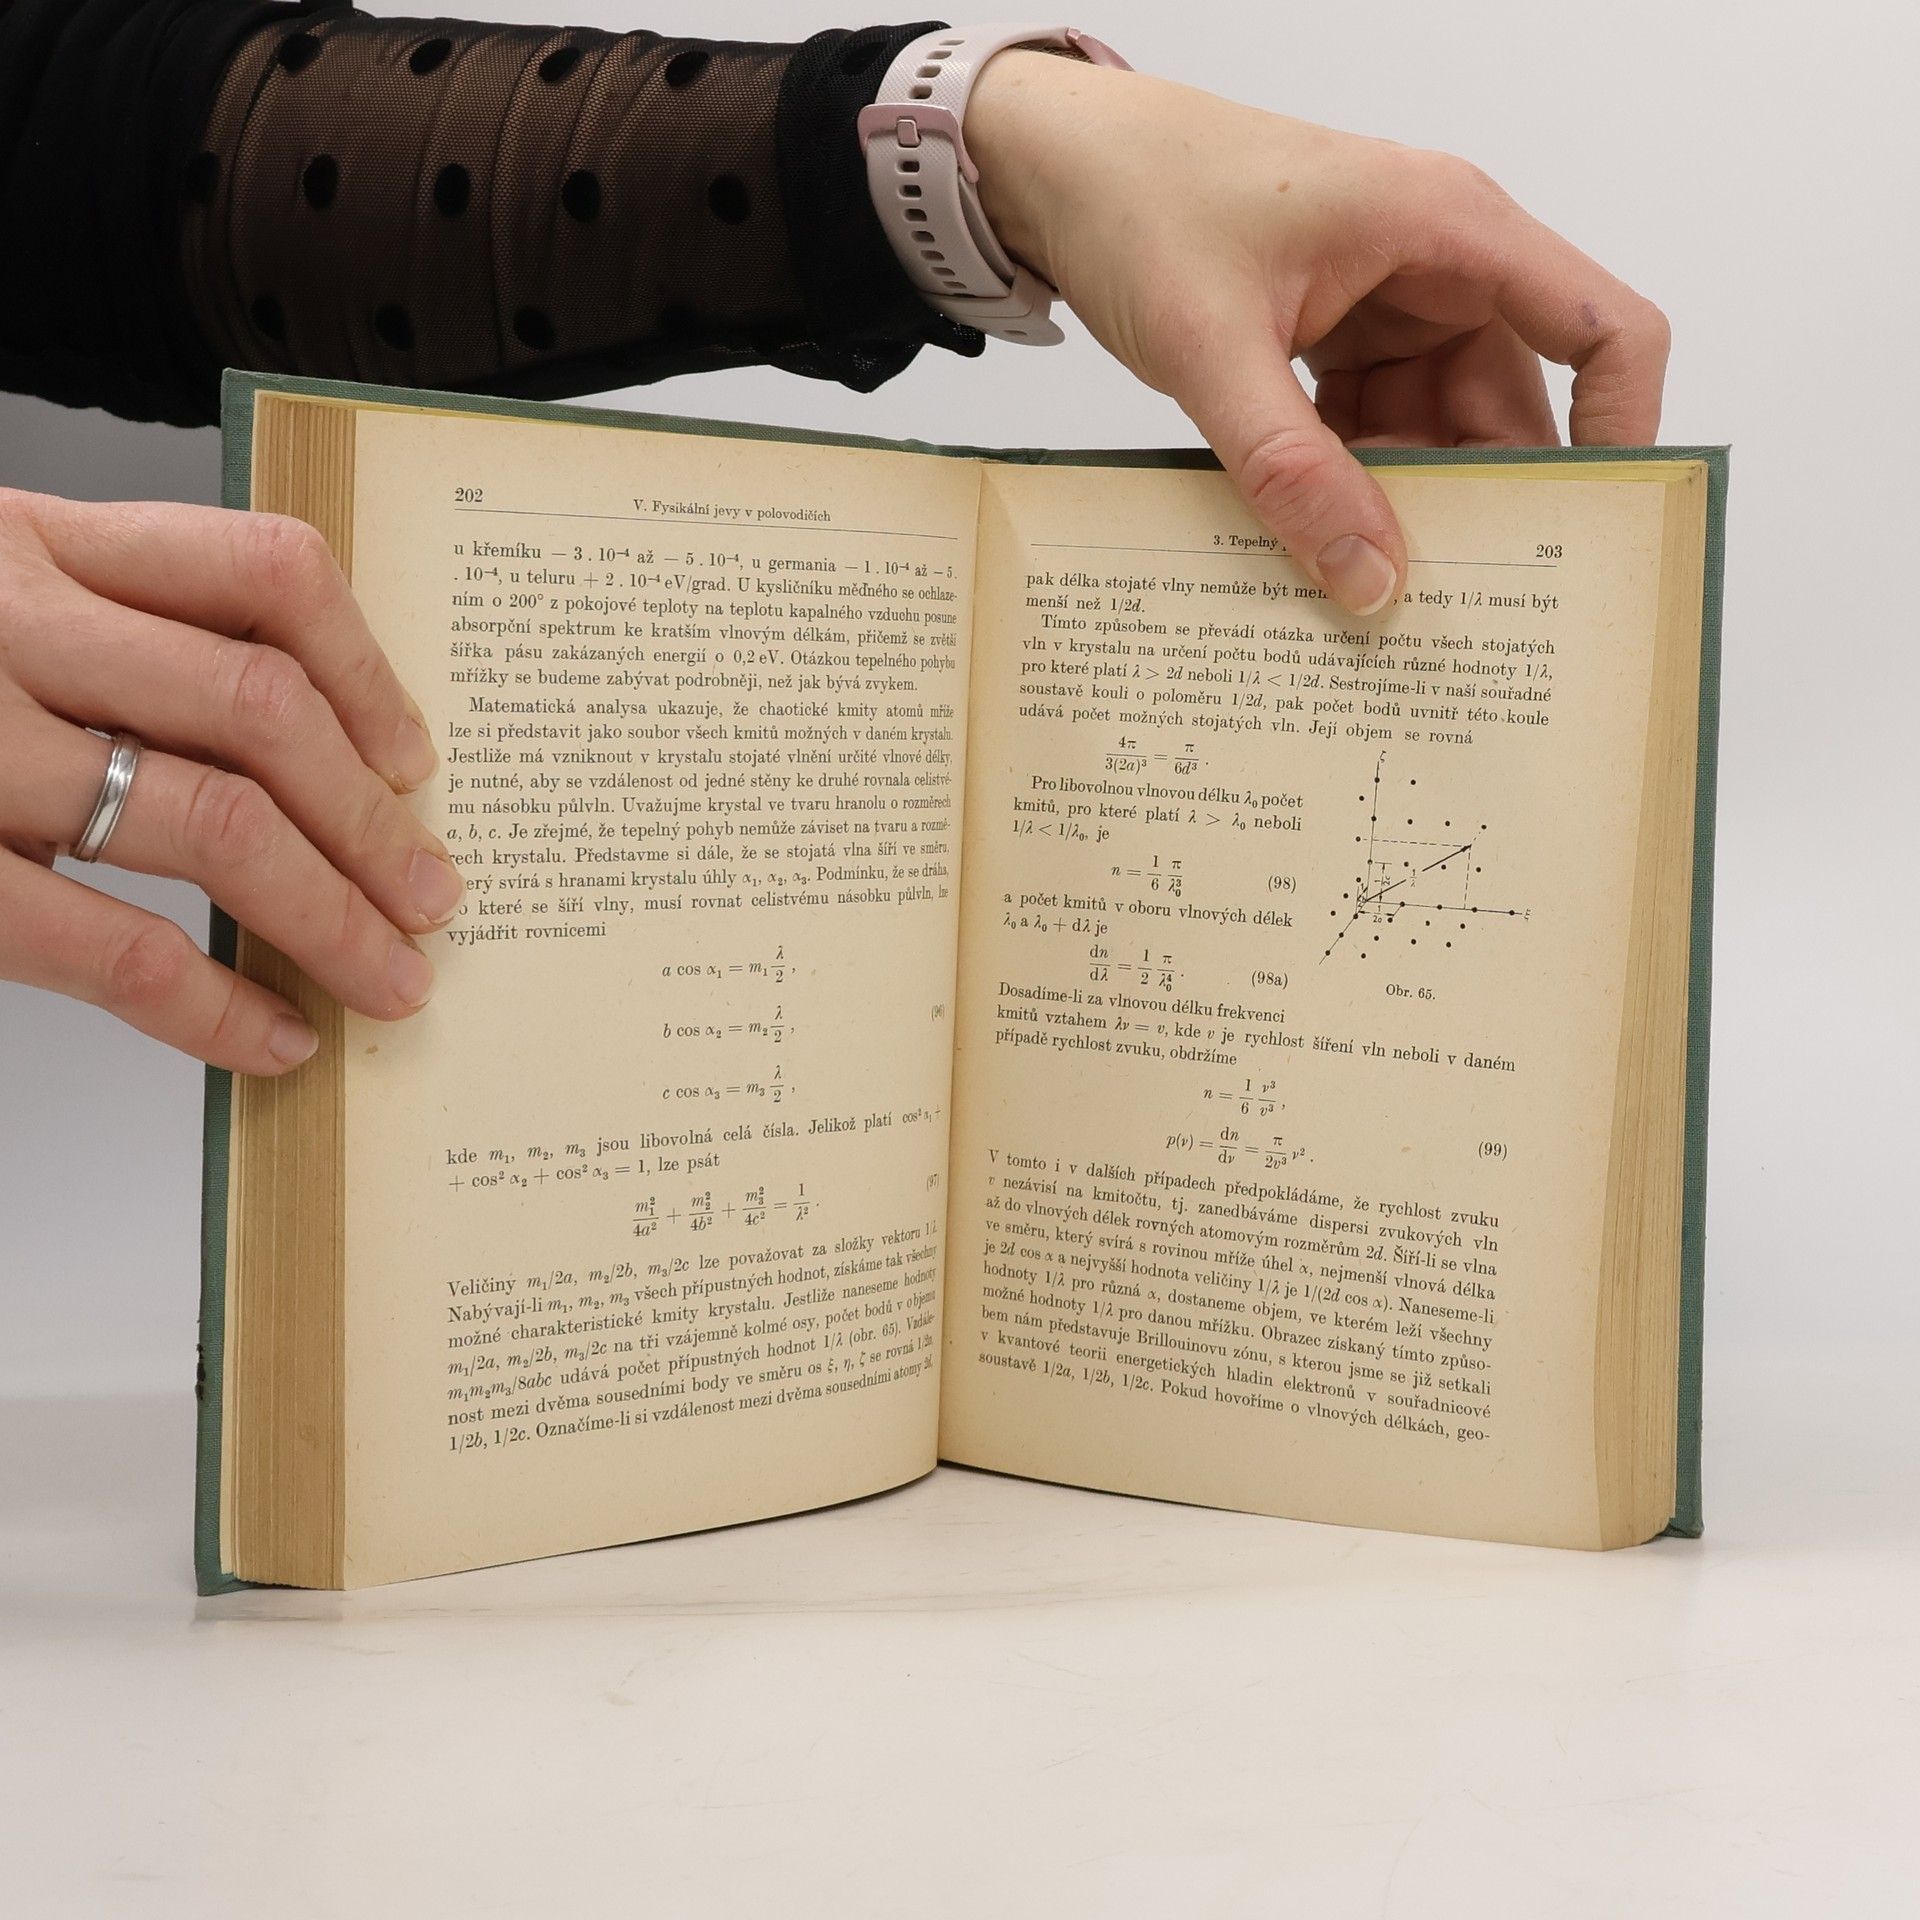 202
V. Fysikální jevy v polovodičích
u křemíku — 3 . 10⁻⁴ až — 5 . 10⁻⁴, u germania — 1 . 10⁻⁴ až — 5 .
. 10⁻⁴, u teluru + 2 . 10⁻⁴ eV/grad. U kysličníku měďného se ochlaze-
ním o 200° z pokojové teploty na teplotu kapalného vzduchu posune
absorpční spektrum ke kratším vlnovým délkám, přičemž se zvětší
šířka pásu zakázaných energií o 0,2 eV. Otázkou tepelného pohybu
mřížky se budeme zabývat podrobněji, než jak bývá zvykem.
Matematická analysa ukazuje, že chaotické kmity atomů mříže
lze si představit jako soubor všech kmitů možných v daném krystalu.
Jestliže má vzniknout v krystalu stojaté vlnění určité vlnové délky,
je nutné, aby se vzdálenost od jedné stěny ke druhé rovnala celistvé-
mu násobku půlvln. Uvažujme krystal ve tvaru hranolu o rozměrech
a, b, c. Je zřejmé, že tepelný pohyb nemůže záviset na tvaru a rozmě-
rech krystalu. Představme si dále, že se stojatá vlna šíří ve směru,
erý svírá s hranami krystalu úhly α₁, α₂, α₃. Podmínku, že se dráha,
o které se šíří vlny, musí rovnat celistvému násobku půlvln, lze
vyjádřit rovnicemi
a cos α₁ = m₁ λ/2 ,
b cos α₂ = m₂ λ/2 , (96)
c cos α₃ = m₃ λ/2 ,
kde m₁, m₂, m₃ jsou libovolná celá čísla. Jelikož platí cos² α₁ +
+ cos² α₂ + cos² α₃ = 1, lze psát
m₁²/4a² + m₂²/4b² + m₃²/4c² = 1/λ² . (97)
Veličiny m₁/2a, m₂/2b, m₃/2c lze považovat za složky vektoru 1/λ.
Nabývají-li m₁, m₂, m₃ všech přípustných hodnot, získáme tak všechny
možné charakteristické kmity krystalu. Jestliže naneseme hodnoty
m₁/2a, m₂/2b, m₃/2c na tři vzájemně kolmé osy, počet bodů v objemu
m₁m₂m₃/8abc udává počet přípustných hodnot 1/λ (obr. 65). Vzdále-
nost mezi dvěma sousedními body ve směru os ξ, η, ζ se rovná 1/2a,
1/2b, 1/2c. Označíme-li si vzdálenost mezi dvěma sousedními atomy 2d,
3. Tepelný
203
pak délka stojaté vlny nemůže být men , a tedy 1/λ musí být
menší než 1/2d.
Tímto způsobem se převádí otázka určení počtu všech stojatých
vln v krystalu na určení počtu bodů udávajících různé hodnoty 1/λ,
pro které platí λ > 2d neboli 1/λ < 1/2d. Sestrojíme-li v naší souřadné
soustavě kouli o poloměru 1/2d, pak počet bodů uvnitř této koule
udává počet možných stojatých vln. Její objem se rovná
4π/3(2a)³ = π/6d³ .
Pro libovolnou vlnovou délku λ₀ počet
kmitů, pro které platí λ > λ₀ neboli
1/λ < 1/λ₀, je
n = 1/6 π/λ₀³ (98)
a počet kmitů v oboru vlnových délek
λ₀ a λ₀ + dλ je
dn/dλ = 1/2 π/λ₀⁴ . (98a)
ζ
1/λ
1/2a
ξ
Obr. 65.
Dosadíme-li za vlnovou délku frekvenci
kmitů vztahem λν = v, kde v je rychlost šíření vln neboli v daném
případě rychlost zvuku, obdržíme
n = 1/6 ν³/v³ ,
p(ν) = dn/dν = π/2v³ ν² . (99)
V tomto i v dalších případech předpokládáme, že rychlost zvuku
v nezávisí na kmitočtu, tj. zanedbáváme dispersi zvukových vln
až do vlnových délek rovných atomovým rozměrům 2d. Šíří-li se vlna
ve směru, který svírá s rovinou mříže úhel α, nejmenší vlnová délka
je 2d cos α a nejvyšší hodnota veličiny 1/λ je 1/(2d cos α). Naneseme-li
hodnoty 1/λ pro různá α, dostaneme objem, ve kterém leží všechny
možné hodnoty 1/λ pro danou mřížku. Obrazec získaný tímto způso-
bem nám představuje Brillouinovu zónu, s kterou jsme se již setkali
v kvantové teorii energetických hladin elektronů v souřadnicové
soustavě 1/2a, 1/2b, 1/2c. Pokud hovoříme o vlnových délkách, geo-